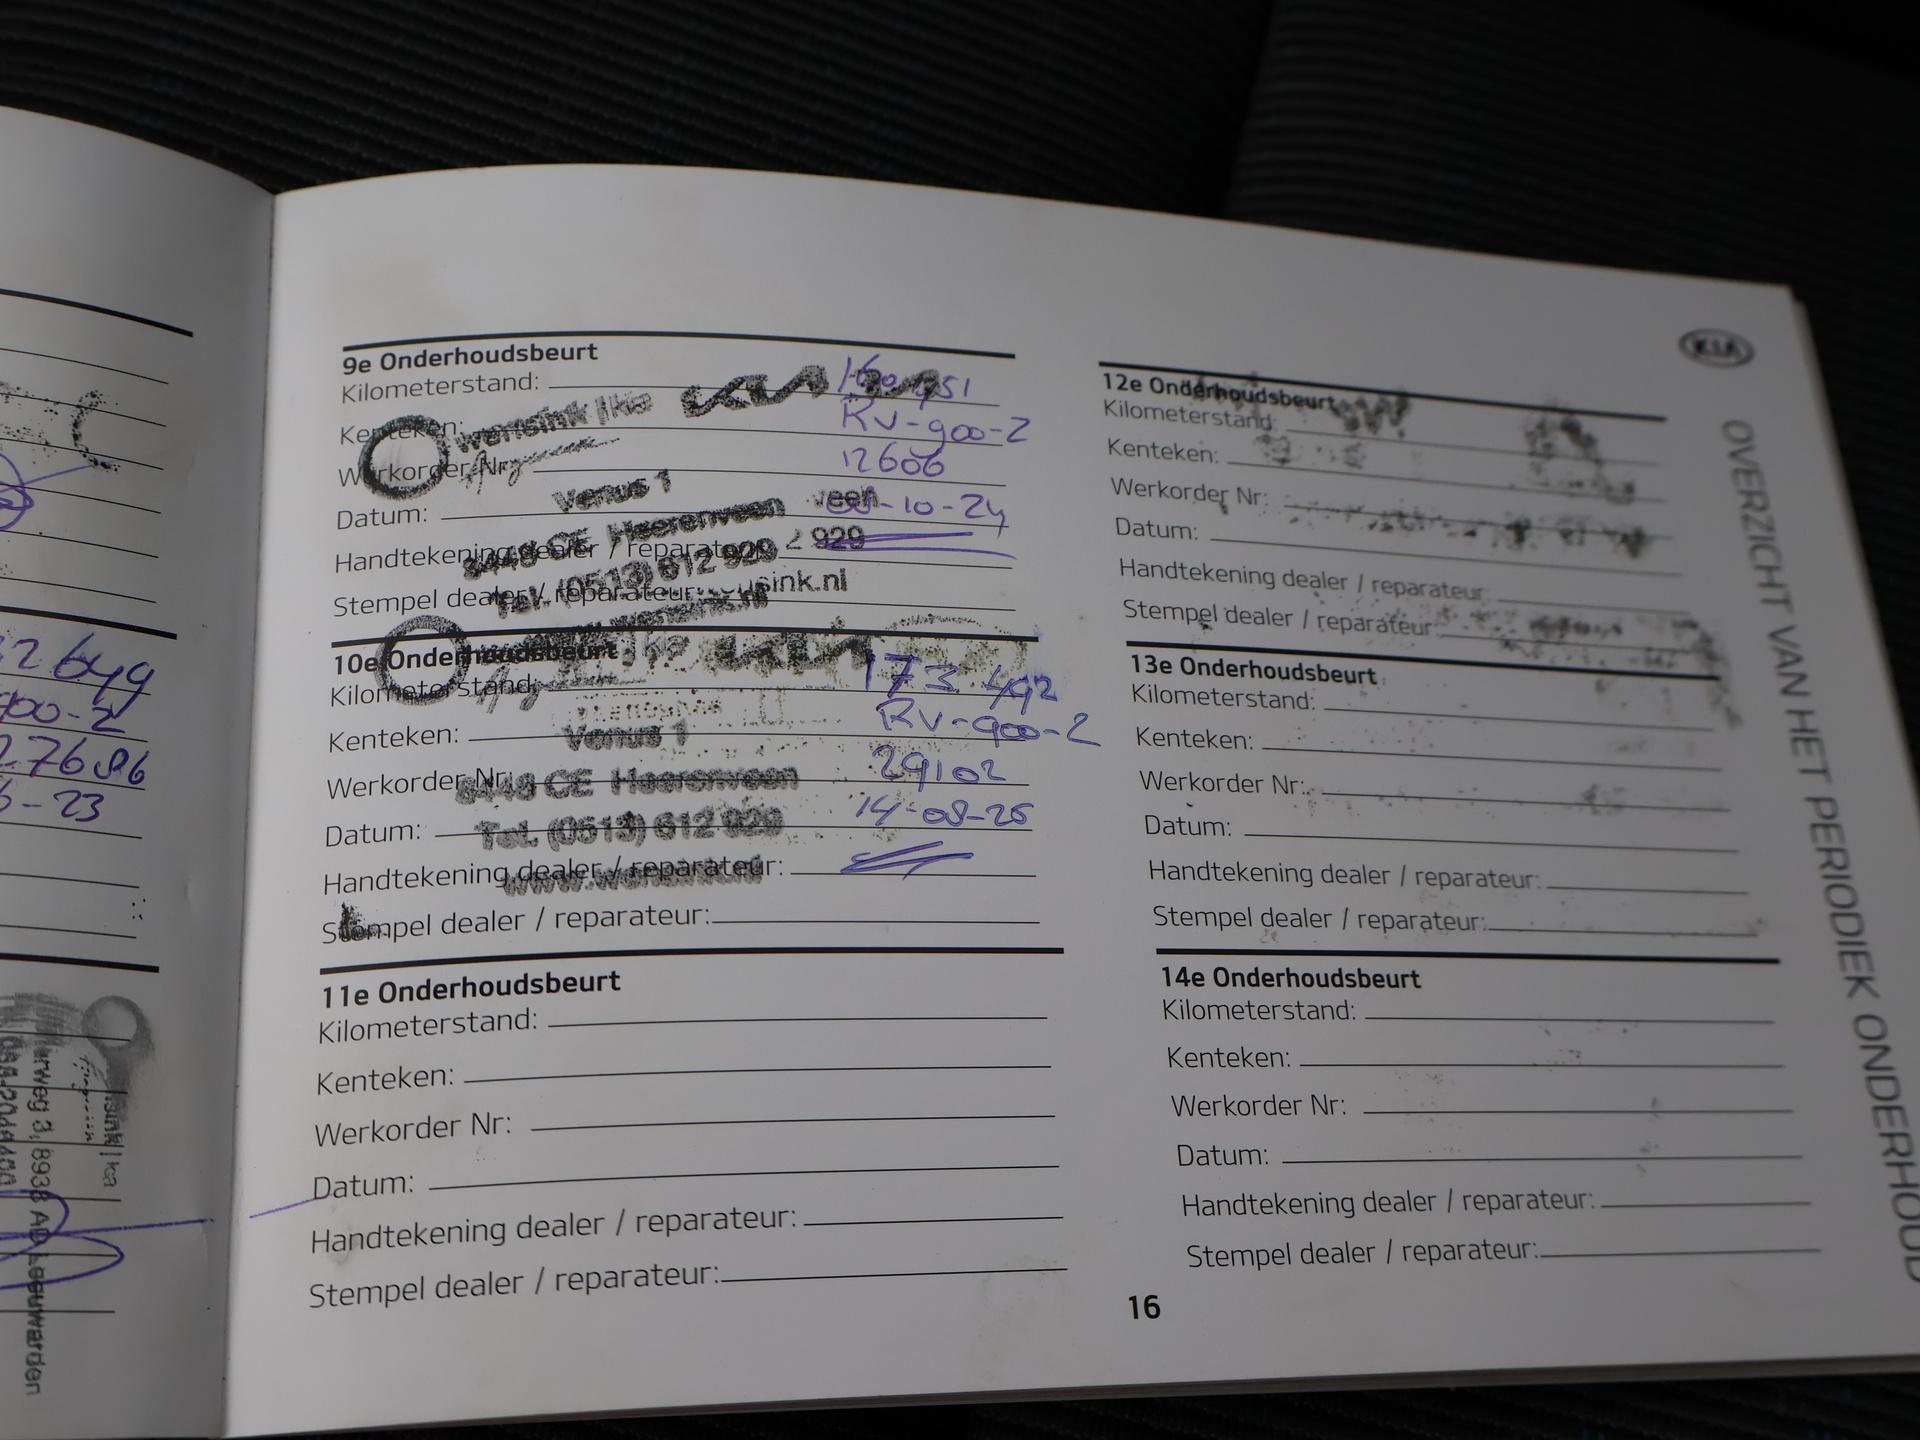 2649
900-2
27696
-23
sink | kia
urweg 3, 8938 AD Leeuwarden
9e Onderhoudsbeurt
Kilometerstand:
Kenteken: RV-900-2
Werkorder Nr: 12606
Datum: -10-24
Handtekening dealer / reparateur:
Stempel dealer / reparateur:
wensink | kia
Venus 1
8448 CE Heerenveen veen
Tel. (0513) 612 929 929
sink.nl
10e Onderhoudsbeurt
Kilometerstand: 173 492
Kenteken: RV-900-2
Werkorder Nr: 29102
Datum: 14-08-25
Handtekening dealer / reparateur:
Stempel dealer / reparateur:
kia
Venus 1
8448 CE Heerenveen
Tel. (0513) 612 929
www.wensink.nl
11e Onderhoudsbeurt
Kilometerstand:
Kenteken:
Werkorder Nr:
Datum:
Handtekening dealer / reparateur:
Stempel dealer / reparateur:
12e Onderhoudsbeurt
Kilometerstand:
Kenteken:
Werkorder Nr:
Datum:
Handtekening dealer / reparateur:
Stempel dealer / reparateur:
13e Onderhoudsbeurt
Kilometerstand:
Kenteken:
Werkorder Nr:
Datum:
Handtekening dealer / reparateur:
Stempel dealer / reparateur:
14e Onderhoudsbeurt
Kilometerstand:
Kenteken:
Werkorder Nr:
Datum:
Handtekening dealer / reparateur:
Stempel dealer / reparateur:
KIA
OVERZICHT VAN HET PERIODIEK ONDERHOUD
16